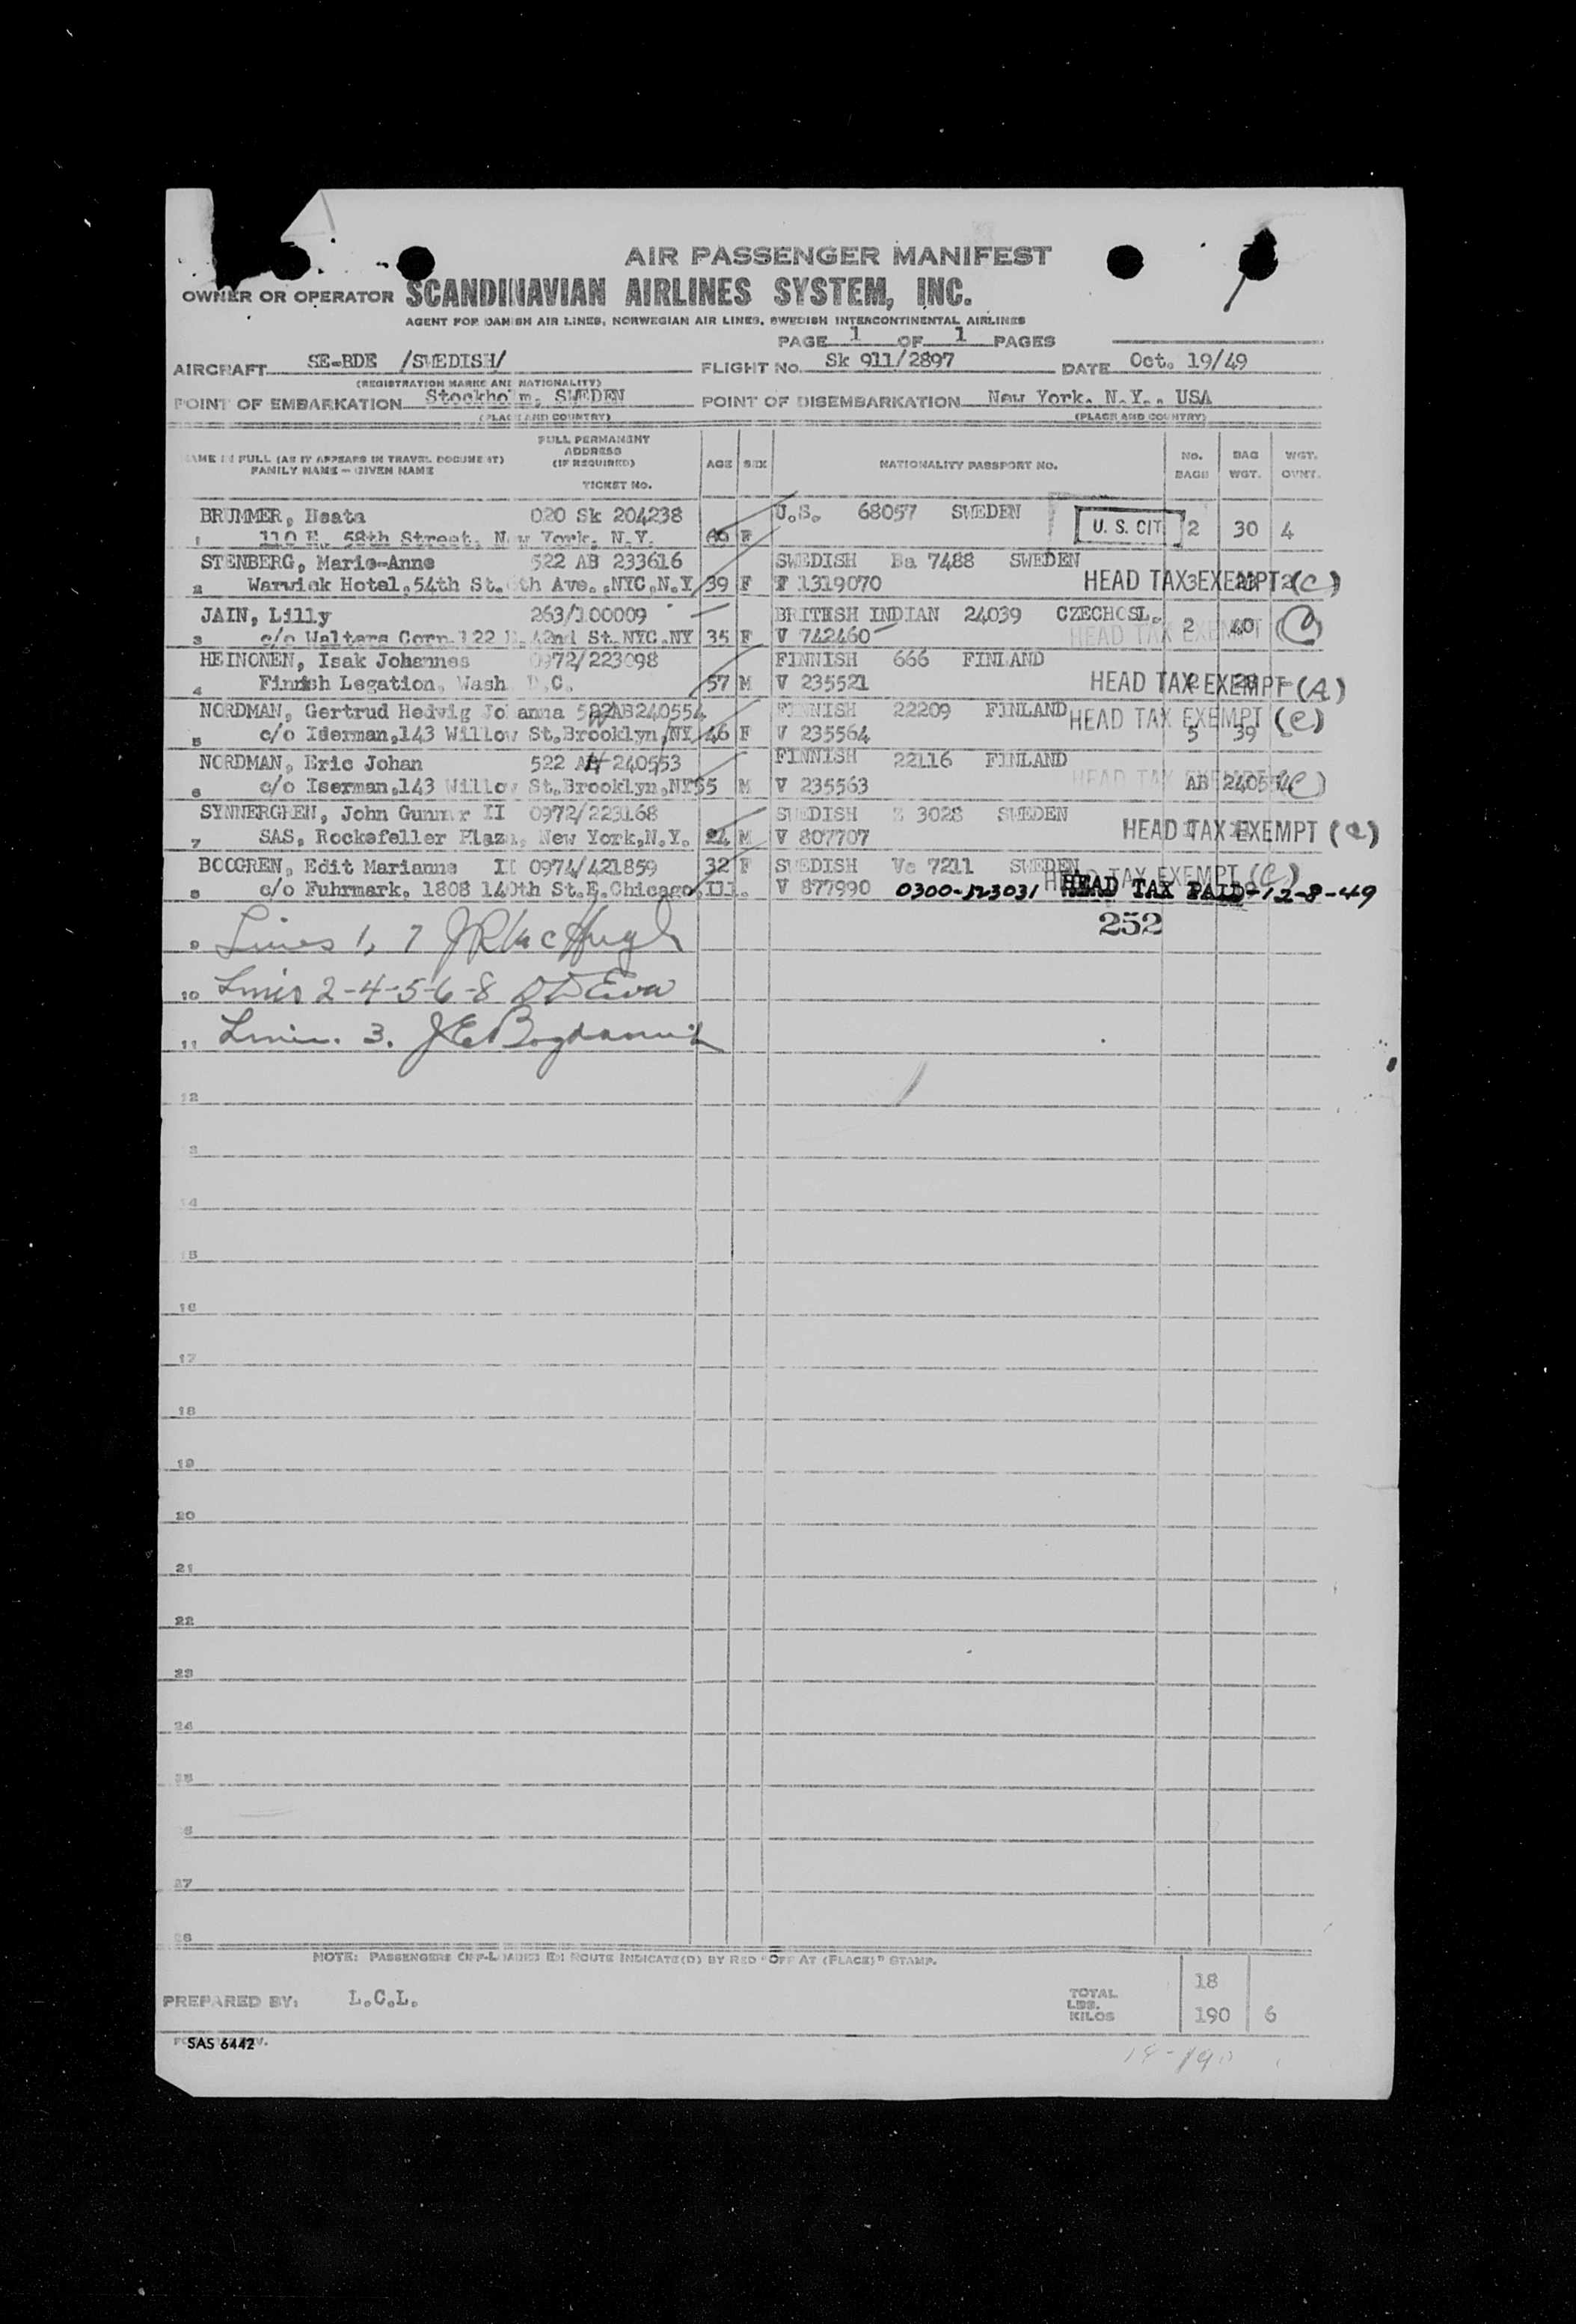 AIR PASSENGER MANIFEST
OWNER OR OPERATOR SCANDINAVIAN AIRLINES SYSTEM, INC.
AGENT FOR DANISH AIR LINES, NORWEGIAN AIR LINES, SWEDISH INTERCONTINENTAL AIRLINES
PAGE 1 OF 1 PAGES
AIRCRAFT SE-BDE /SWEDISH/ FLIGHT NO. Sk 911/2897 DATE Oct. 19/49
(REGISTRATION MARKS AND NATIONALITY)
POINT OF EMBARKATION Stockholm, SWEDEN POINT OF DISEMBARKATION New York. N.Y., USA
(PLACE AND COUNTRY) (PLACE AND COUNTRY)
NAME IN FULL (AS IT APPEARS IN TRAVEL DOCUMENT) FAMILY NAME - GIVEN NAME FULL PERMANENT ADDRESS (IF REQUIRED) TICKET NO. AGE SEX NATIONALITY PASSPORT NO. NO. BAGS BAG WGT. WGT. OVWT.
BRUMMER, Beata 020 Sk 204238 U.S. 68057 SWEDEN U. S. CIT 2 30 4
1 110 E. 58th Street, New York, N.Y. F
STENBERG, Marie-Anne 522 AB 233616 SWEDISH Ba 7488 SWEDEN
2 Warwick Hotel,54th St. 6th Ave.,NYC.N.Y 39 F V 1319070 HEAD TAX EXEMPT (C) 3 2
JAIN, Lilly 263/100009 BRITISH INDIAN 24039 CZECHOSL.
3 c/o Walters Corp.122 E. 42nd St.NYC.NY 35 F V 742460 HEAD TAX EXEMPT (C) 2 40
HEINONEN, Isak Johannes 0972/223098 FINNISH 666 FINLAND
4 Finnish Legation, Wash D.C. 57 M V 235521 HEAD TAX EXEMPT (A) 2 28
NORDMAN, Gertrud Hedvig Johanna 522AB240554 FINNISH 22209 FINLAND HEAD TAX EXEMPT (C)
5 c/o Iserman,143 Willow St.Brooklyn,NY 46 F V 235564 5 39
NORDMAN, Eric Johan 522 AB 240553 FINNISH 22116 FINLAND
6 c/o Iserman,143 Willow St.Brooklyn,NY 55 M V 235563 HEAD TAX EXEMPT (C) AB 240554
SYNNERGREN, John Gunnar II 0972/223168 SWEDISH 3028 SWEDEN
7 SAS, Rockefeller Plaza, New York,N.Y. 24 M V 807707 HEAD TAX EXEMPT (a)
BOOGREN, Edit Marianne II 0974/421859 32 F SWEDISH Ve 7211 SWEDEN HEAD TAX EXEMPT (C)
8 c/o Fuhrmark. 1808 140th St.E.Chicago,Ill. V 877990 0300-123031 HEAD TAX PAID-12-8-49
252
9 Lines 1, 7 J R MacHugh
10 Lines 2-4-5-6-8
11 Line. 3.
12
13
14
15
16
17
18
19
20
21
22
23
24
25
26
27
28
NOTE: PASSENGERS OFF-LOADED EN ROUTE INDICATE(D) BY RED "OFF AT (PLACE)" STAMP.
PREPARED BY: L.C.L. TOTAL LBS. KILOS 18 190 6
SAS 6442
18-190